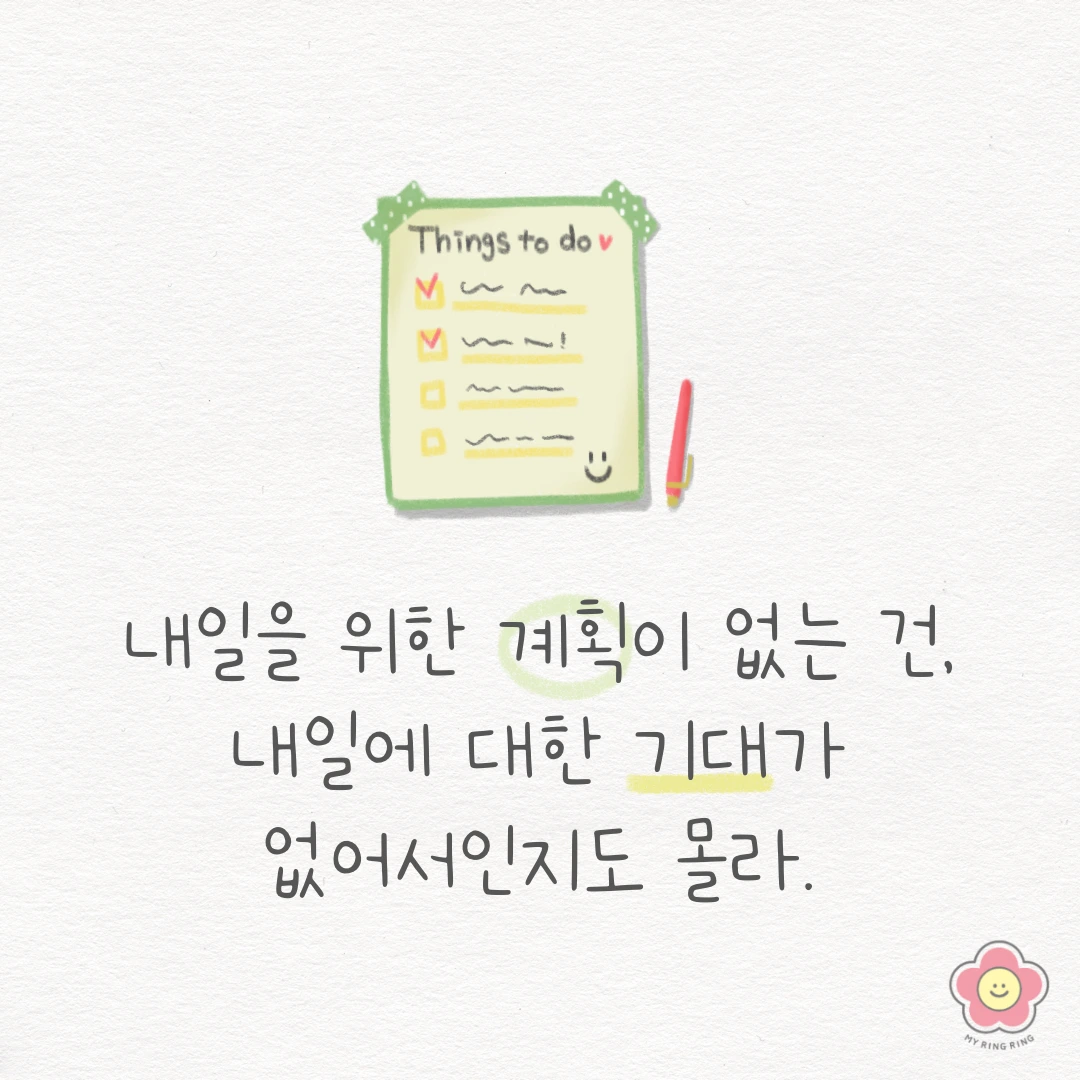 Things to do
내일을 위한 계획이 없는 건,
내일에 대한 기대가
없어서인지도 몰라.
MY RING RING